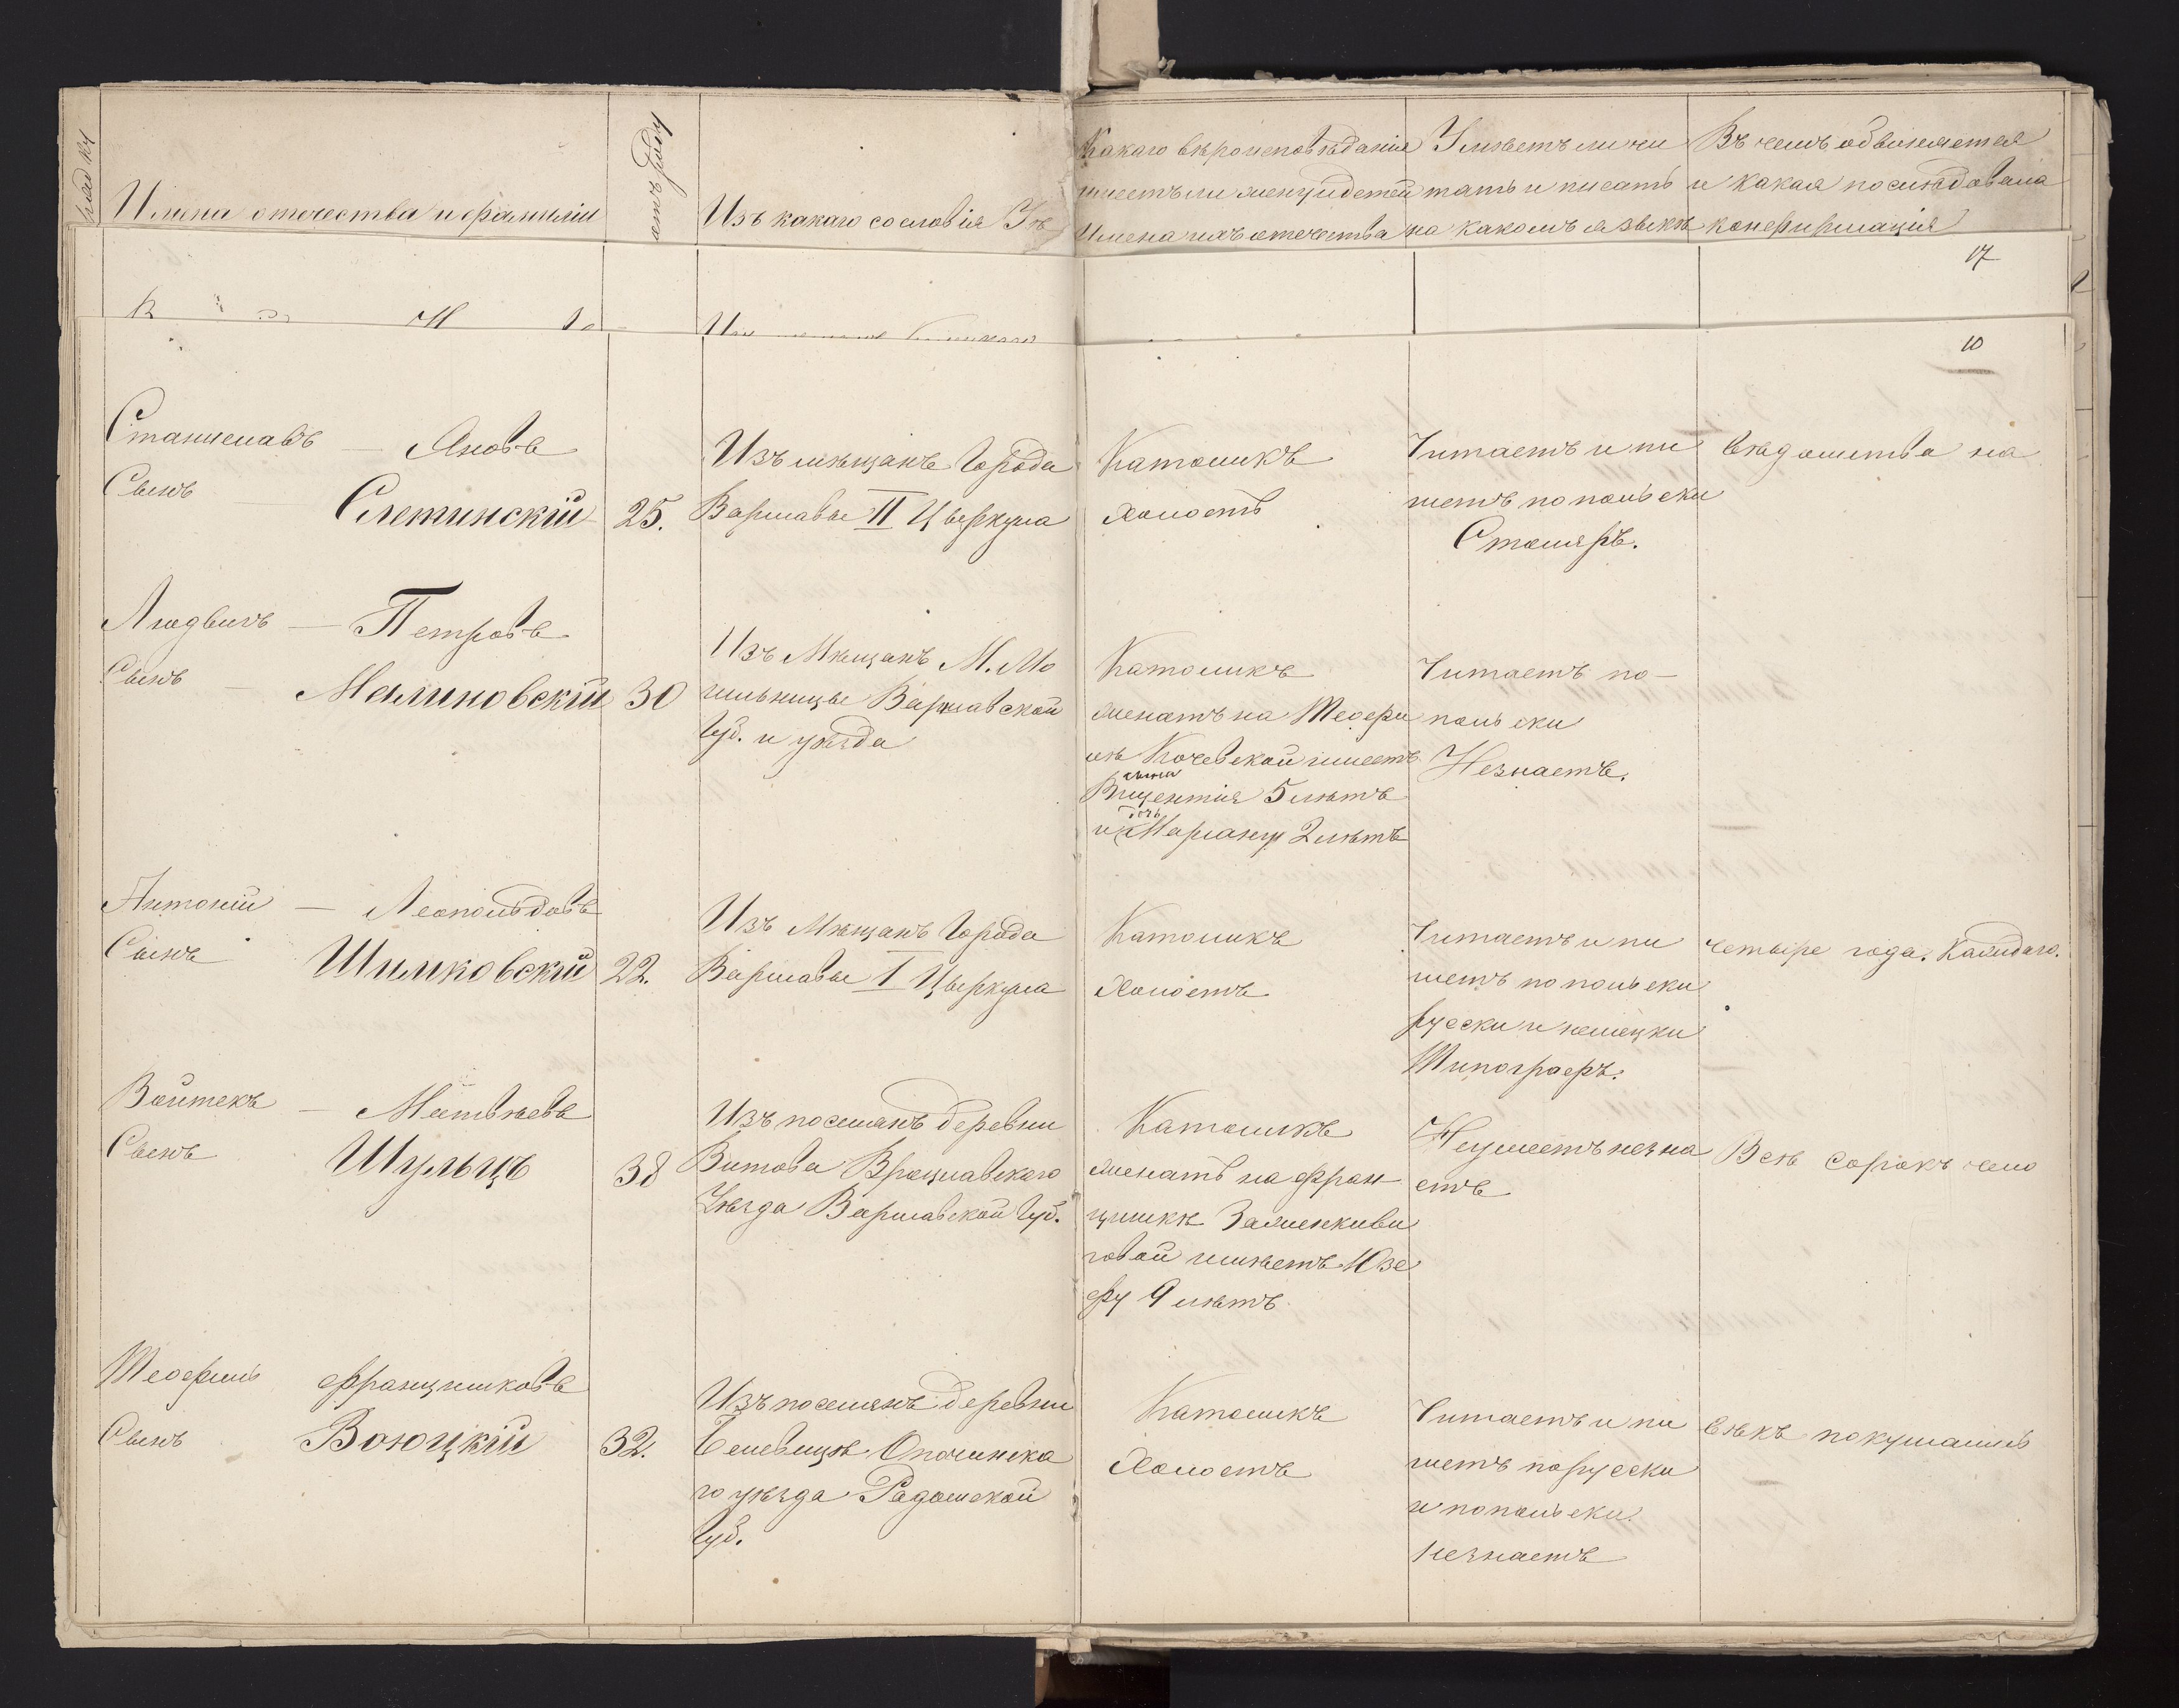 Имена отечества и фамилии
Изъ какаго сословія
Какаго вѣроисповѣданія
имеетъ ли жену и детей
Имена ихъ отечества
Умѣетъ ли чи
тать и писать
на какомъ языкѣ
Въ чемъ обвиняется
и какая последовала
конфирмація
17
10
Станиславъ — Яновъ
Сынъ
25.
Изъ мѣщанъ Города
Варшавы II Цыркула
Католикъ
Холостъ
Читаетъ и пи
шетъ по польски
Столяръ.
на
Людвигъ — Петровъ
Сынъ — Малиновскій
30
Изъ Мѣщанъ М. Мо
гильницы Варшавской
Губ. и уѣзда
Католикъ
женатъ на Теофи
лѣ Кочевской имеетъ
сына
Вицентія 5 лѣтъ
дочь
и Маріану 2 лѣтъ
Читаетъ по-
польски
Незнаетъ.
Антоній — Леопольдовъ
Сынъ Шимковскій
22.
Изъ Мѣщанъ Города
Варшавы I Цыркула
Католикъ
Холостъ
Читаетъ и пи
шетъ по польски
руски и немецки
Типографъ.
четыре года. Каждаго.
Войтекъ — Матвѣевъ
Сынъ Шульцъ
38
Изъ поселянъ деревни
Витова Вроцлавскаго
Уѣзда Варшавской Губ.
Католикъ
женатъ на Фран
цишкѣ
имѣетъ Юзе
фу 9 лѣтъ
Неумеетъ незна
етъ
Всѣ сорокъ чело
Теофиль Францишковъ
Сынъ
32.
Изъ поселянъ деревни
Опочинска
го уѣзда Радомской
Губ.
Католикъ
Холостъ
Читаетъ и пи
шетъ по русски
и по польски.
незнаетъ
вѣкъ покушались